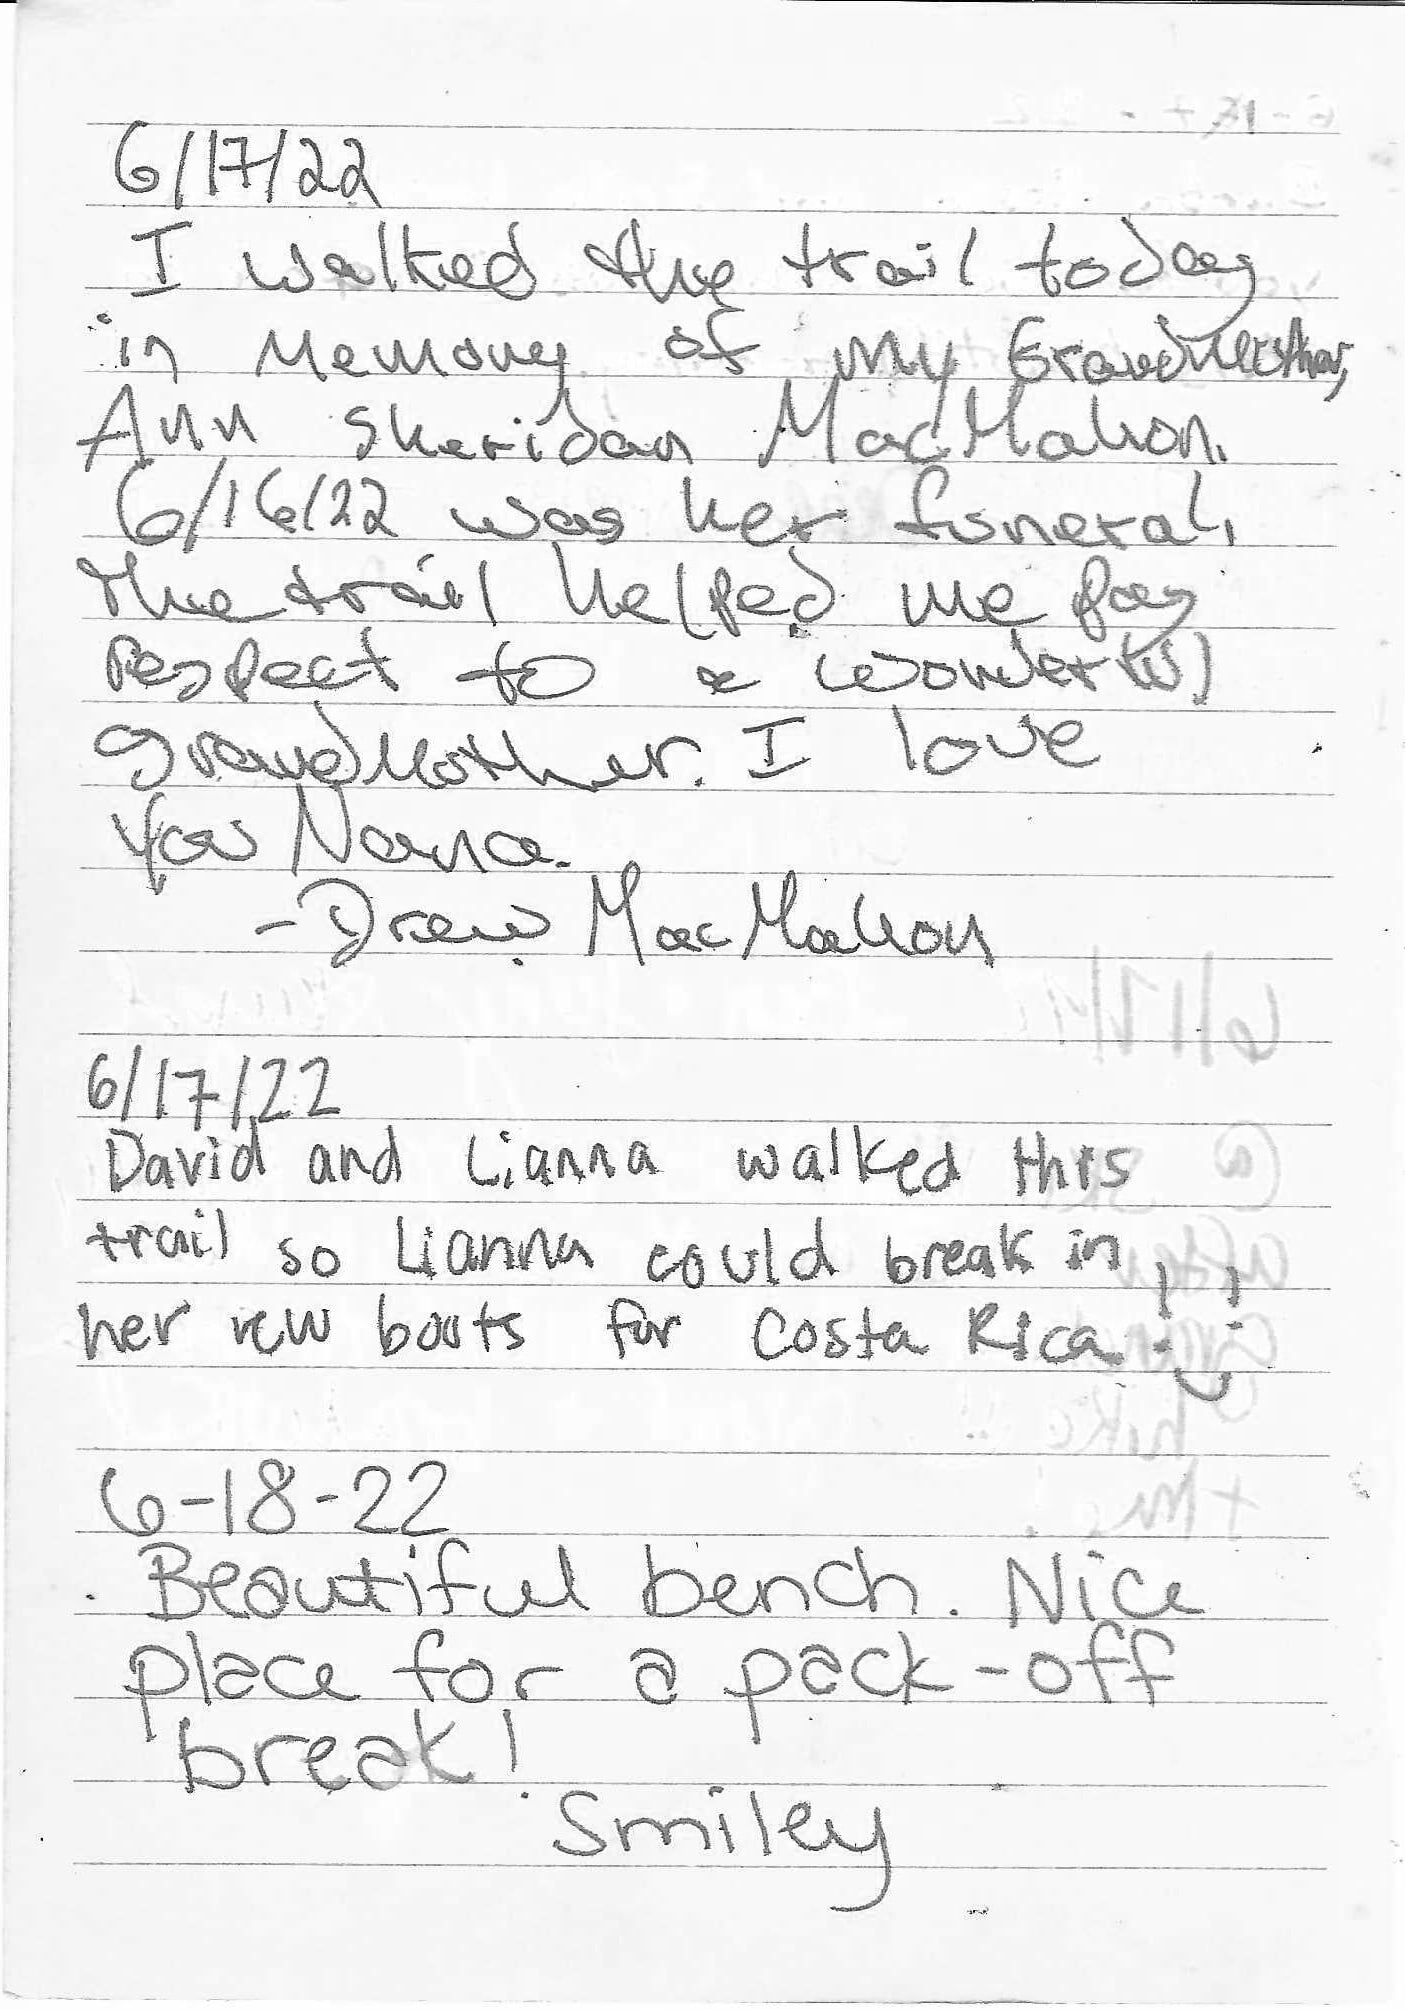 6/17/22
I walked the trail today
in Memory of My GrandMother,
Ann Sheridan MacMahon.
6/16/22 was her funeral,
the trail helped me pay
respect to a wonderful
grandMother. I love
you Nana.
- Drew MacMahon
6/17/22
David and Lianna walked this
trail so Lianna could break in
her new boots for Costa Rica! :)
6-18-22
Beautiful bench. Nice
place for a pack-off
break!
Smiley